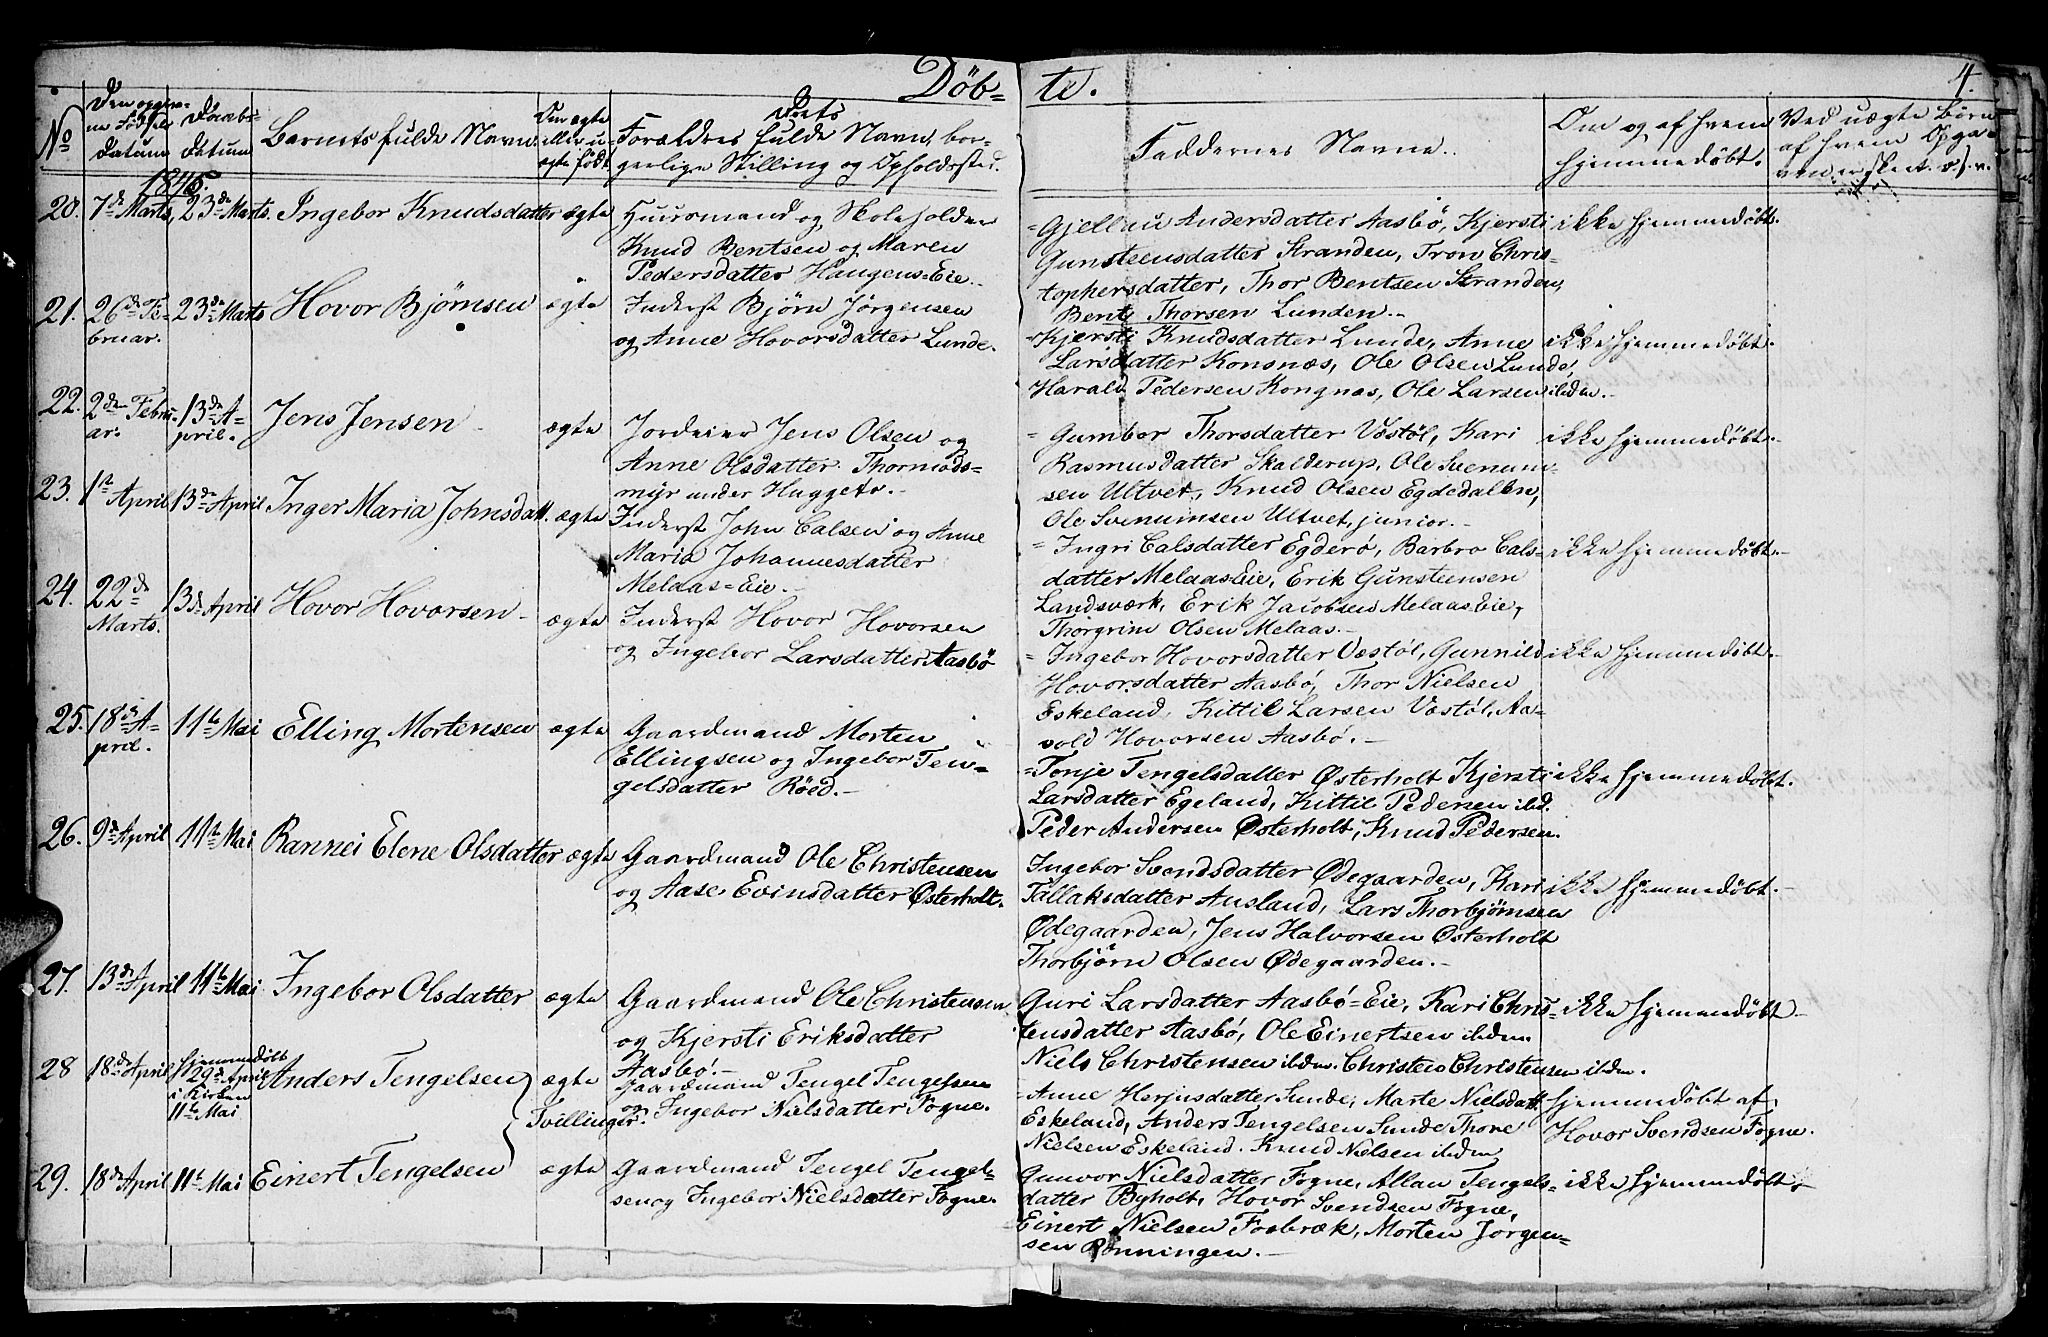 Döb- te. 4.
No
Den opgivne Födsels Datum
Daabs-Datum
Barnets fulde Navn
Om ægte eller uægte født
Dets Forældres fulde Navn, borgerlige Stilling og Opholdssted.
Faddernes Navne.
Om og af hvem hjemmedöbt.
Ved uægte Börn af hvem Opgaven er skeet. o. s. v.
1845.
20. 7de Marts, 23de Marts. Ingebor Knudsdatter ægte
Huusmand og Skoleholder
Knud Bentsen og Maren
Pedersdatter Haugens=Eie.
Gjellau Andersdatter Aasbö, Kjersti
Gunsteensdatter Stranden, Tron Chris-
tophersdatter, Thor Bentsen Stranden,
Bent Thorsen Lunden.-
ikke hjemmedöbt.
21. 26de Fe-
bruar. 23de Marts Hovor Bjørnsen ægte
Inderst Bjørn Jørgensen
og Anne Hovorsdatter Lunde.
Kjersti Knudsdatter Lunde, Anne
Larsdatter Konsnæs, Ole Olsen Lunde,
Harald Pedersen Kongnæs, Ole Larsen ibdm.-
ikke hjemmedöbt.
22. 2den Febru-
ar. 13de A-
pril. Jens Jensen ægte
Jordeier Jens Olsen og
Anne Olsdatter Thormods=
myr under Huggeto.-
Gumbor Thorsdatter Vestøl, Kari
Rasmusdatter Skalderup, Ole Svenum-
sen Ultvet, Knud Olsen Egdedalen,
Ole Svenumsen Ultvet, junior.-
ikke hjemmedöbt.
23. 1ste April 13de April Inger Maria Johnsdatt. ægte
Inderst John Calsen og Anne
Maria Johannesdatter
Melaas=Eie.-
Ingri Calsdatter Egderö, Barbro Cals-
datter Melaas Eie, Erik Gunsteensen
Landsværk, Erik Jacobsen Melaas Eie,
Thorgrim Olsen Melaas.-
ikke hjemmedöbt.-
24. 22de
Marts. 13de April Hovor Hovorsen- ægte
Inderst Hovor Hovorsen
og Ingebor Larsdatter Aasbö
Ingebor Hovorsdatter Vestøl, Gunnild
Hovorsdatter Aasbö, Thor Nielsen
Eskeland, Kittil Larsen Vestøl, Aa-
vold Hovorsen Aasbö.-
ikke hjemmedöbt.
25. 18de A-
pril. 11te Mai Elling Mortensen ægte
Gaardmand Morten
Ellingsen og Ingebor Ten-
gelsdatter Röed.-
Tonje Tengelsdatter Østerholt Kjersti
Larsdatter Egeland, Kittil Pedersen ibd.
Peder Andersen Østerholt, Knud Pedersen.
ikke hjemmedöbt.
26. 9de April 11te Mai Rannei Elene Olsdatter ægte
Gaardmand Ole Christensen
og Aase Evinsdatter Østerholt.
Ingebor Svendsdatter Ødegaarden, Kari
Tallaksdatter Ausland, Lars Thorbjørnsen
Ødegaarden, Jens Halvorsen Østerholt
Thorbjørn Olsen Ødegaarden.-
ikke hjemmedöbt.-
27. 13de April 11te Mai Ingebor Olsdatter ægte
Gaardmand Ole Christensen
og Kjersti Eriksdatter
Aasbö.-
Guri Larsdatter Aasbö=Eie, Kari Chris-
tensdatter Aasbö, Ole Einertsen ibdm.
Niels Christensen ibdm. Christen Christensen ibdm.
ikke hjemmedöbt-
28 18de April hjemmedöbt
29de April
i Kirken
11te Mai Anders Tengelsen ægte
Tvillinger.
Gaardmand Tengel Tengelsen
og Ingebor Nielsdatter Fogne.
Anne Herjusdatter Sunde, Marte Nielsdatt.
Eskeland, Anders Tengelsen Sunde Thore
Nielsen Eskeland. Knud Nielsen ibdm
hjemmedöbt af
Hovor Svendsen Fogne.
29. 18de April 11te Mai Einert Tengelsen ægte
Gaardmand Tengel Tengel-
sen og Ingebor Nielsdatter Fogne.
Gunvor Nielsdatter Fogne, Allau Tengels-
datter Byholt, Hovor Svendsen Fogne,
Einert Nielsen Fosbræk, Morten Jorgen-
sen Rønningen.-
ikke hjemmedöbt.